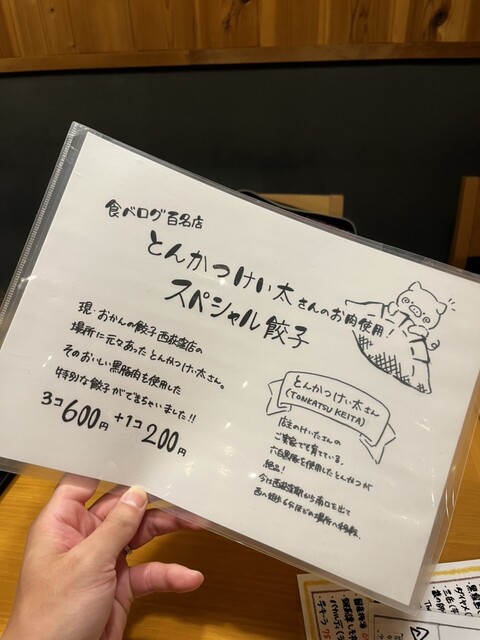 食べログ百名店
とんかつけい太さんのお肉使用！
スペシャル餃子
現・おかんの餃子西荻窪店の
場所に元々あったとんかつけい太さん。
そのおいしい黒豚肉を使用した
特別な餃子ができちゃいました!!
3コ600円 +1コ200円
とんかつけい太さん
(TONKATSU KEITA)
店主のけいたさんの
ご実家でも育てている、
六白黒豚を使用したとんかつが
絶品！
今は西荻窪駅から南口を出て
西へ徒歩6分ほどの場所へ移転。